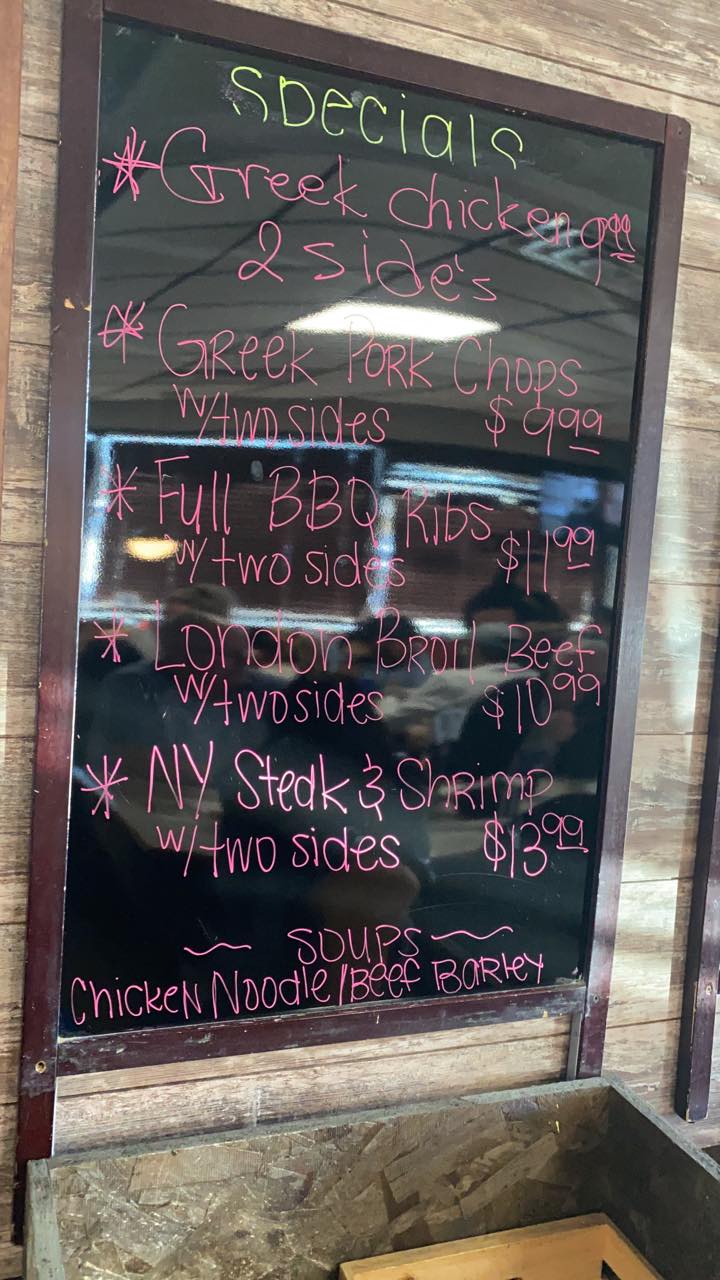 Specials
* Greek chicken 9.99
2 side's
* Greek Pork Chops
w/two sides $9.99
* Full BBQ Ribs
w/two sides $11.99
* London Broil Beef
w/two sides $10.99
* NY Steak & Shrimp
w/two sides $13.99
~ SOUPS ~
Chicken Noodle/Beef Barley